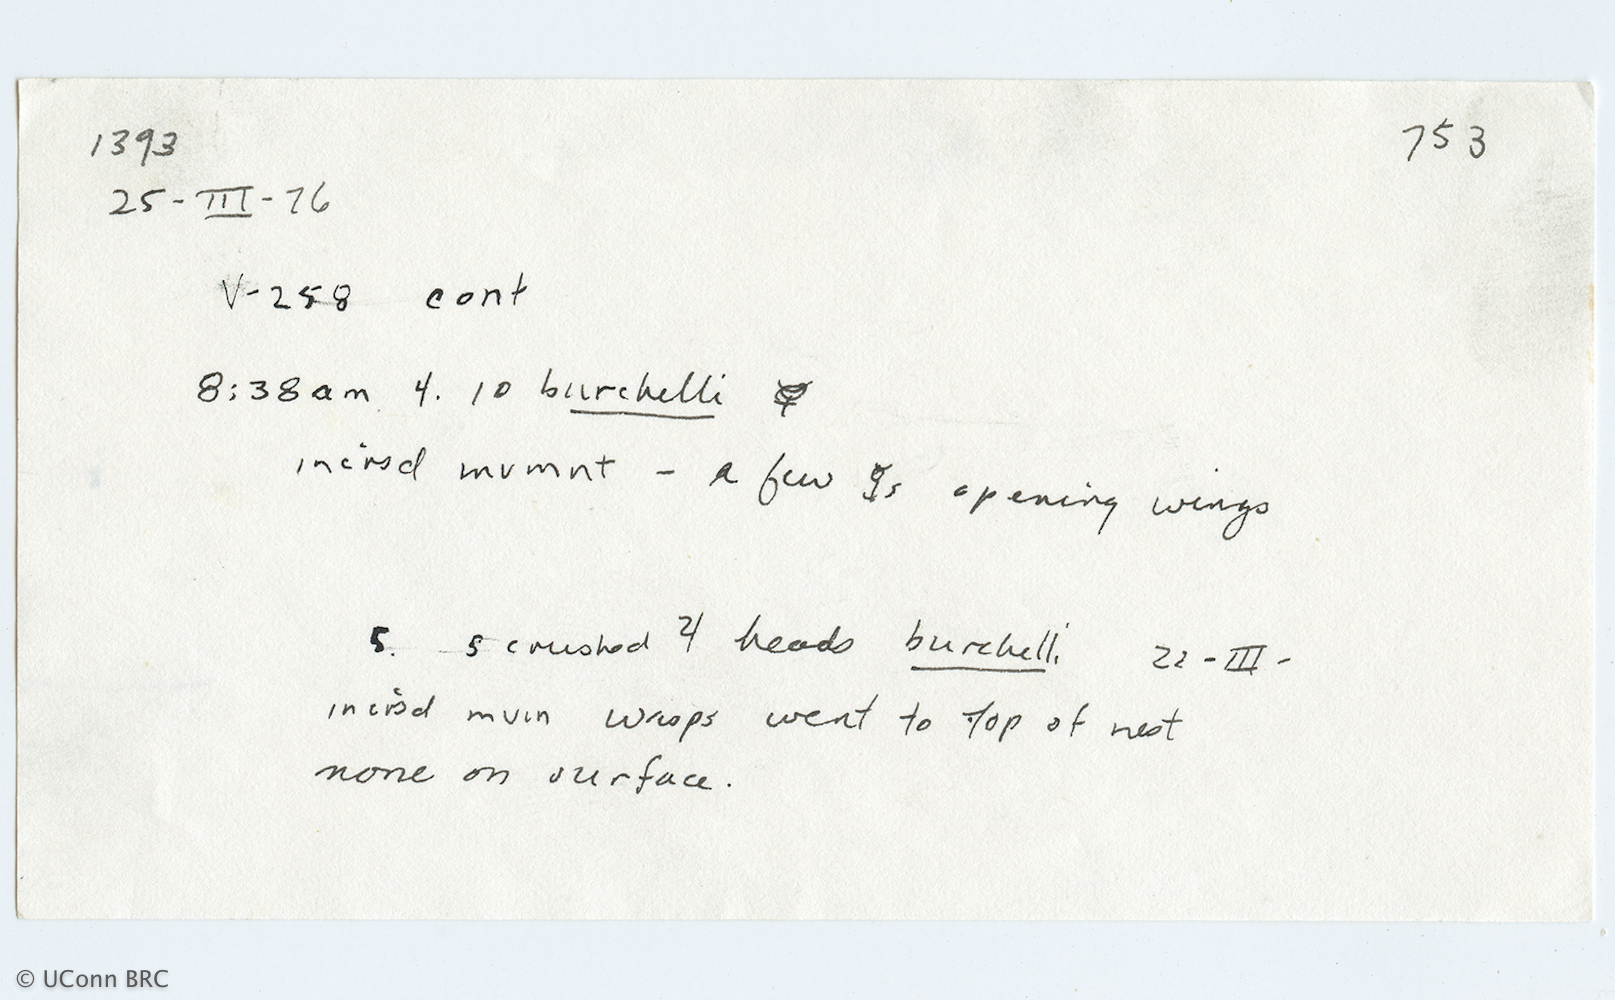 1393
753
25-III-76
V-258 cont
8:38am 4. 10 burchelli
incrsd mvmnt - a few ☿s opening wings
5. 5 crushed ♃ heads burchelli 22-III-
incrsd mvm wasps went to top of nest
none on surface.
© UConn BRC